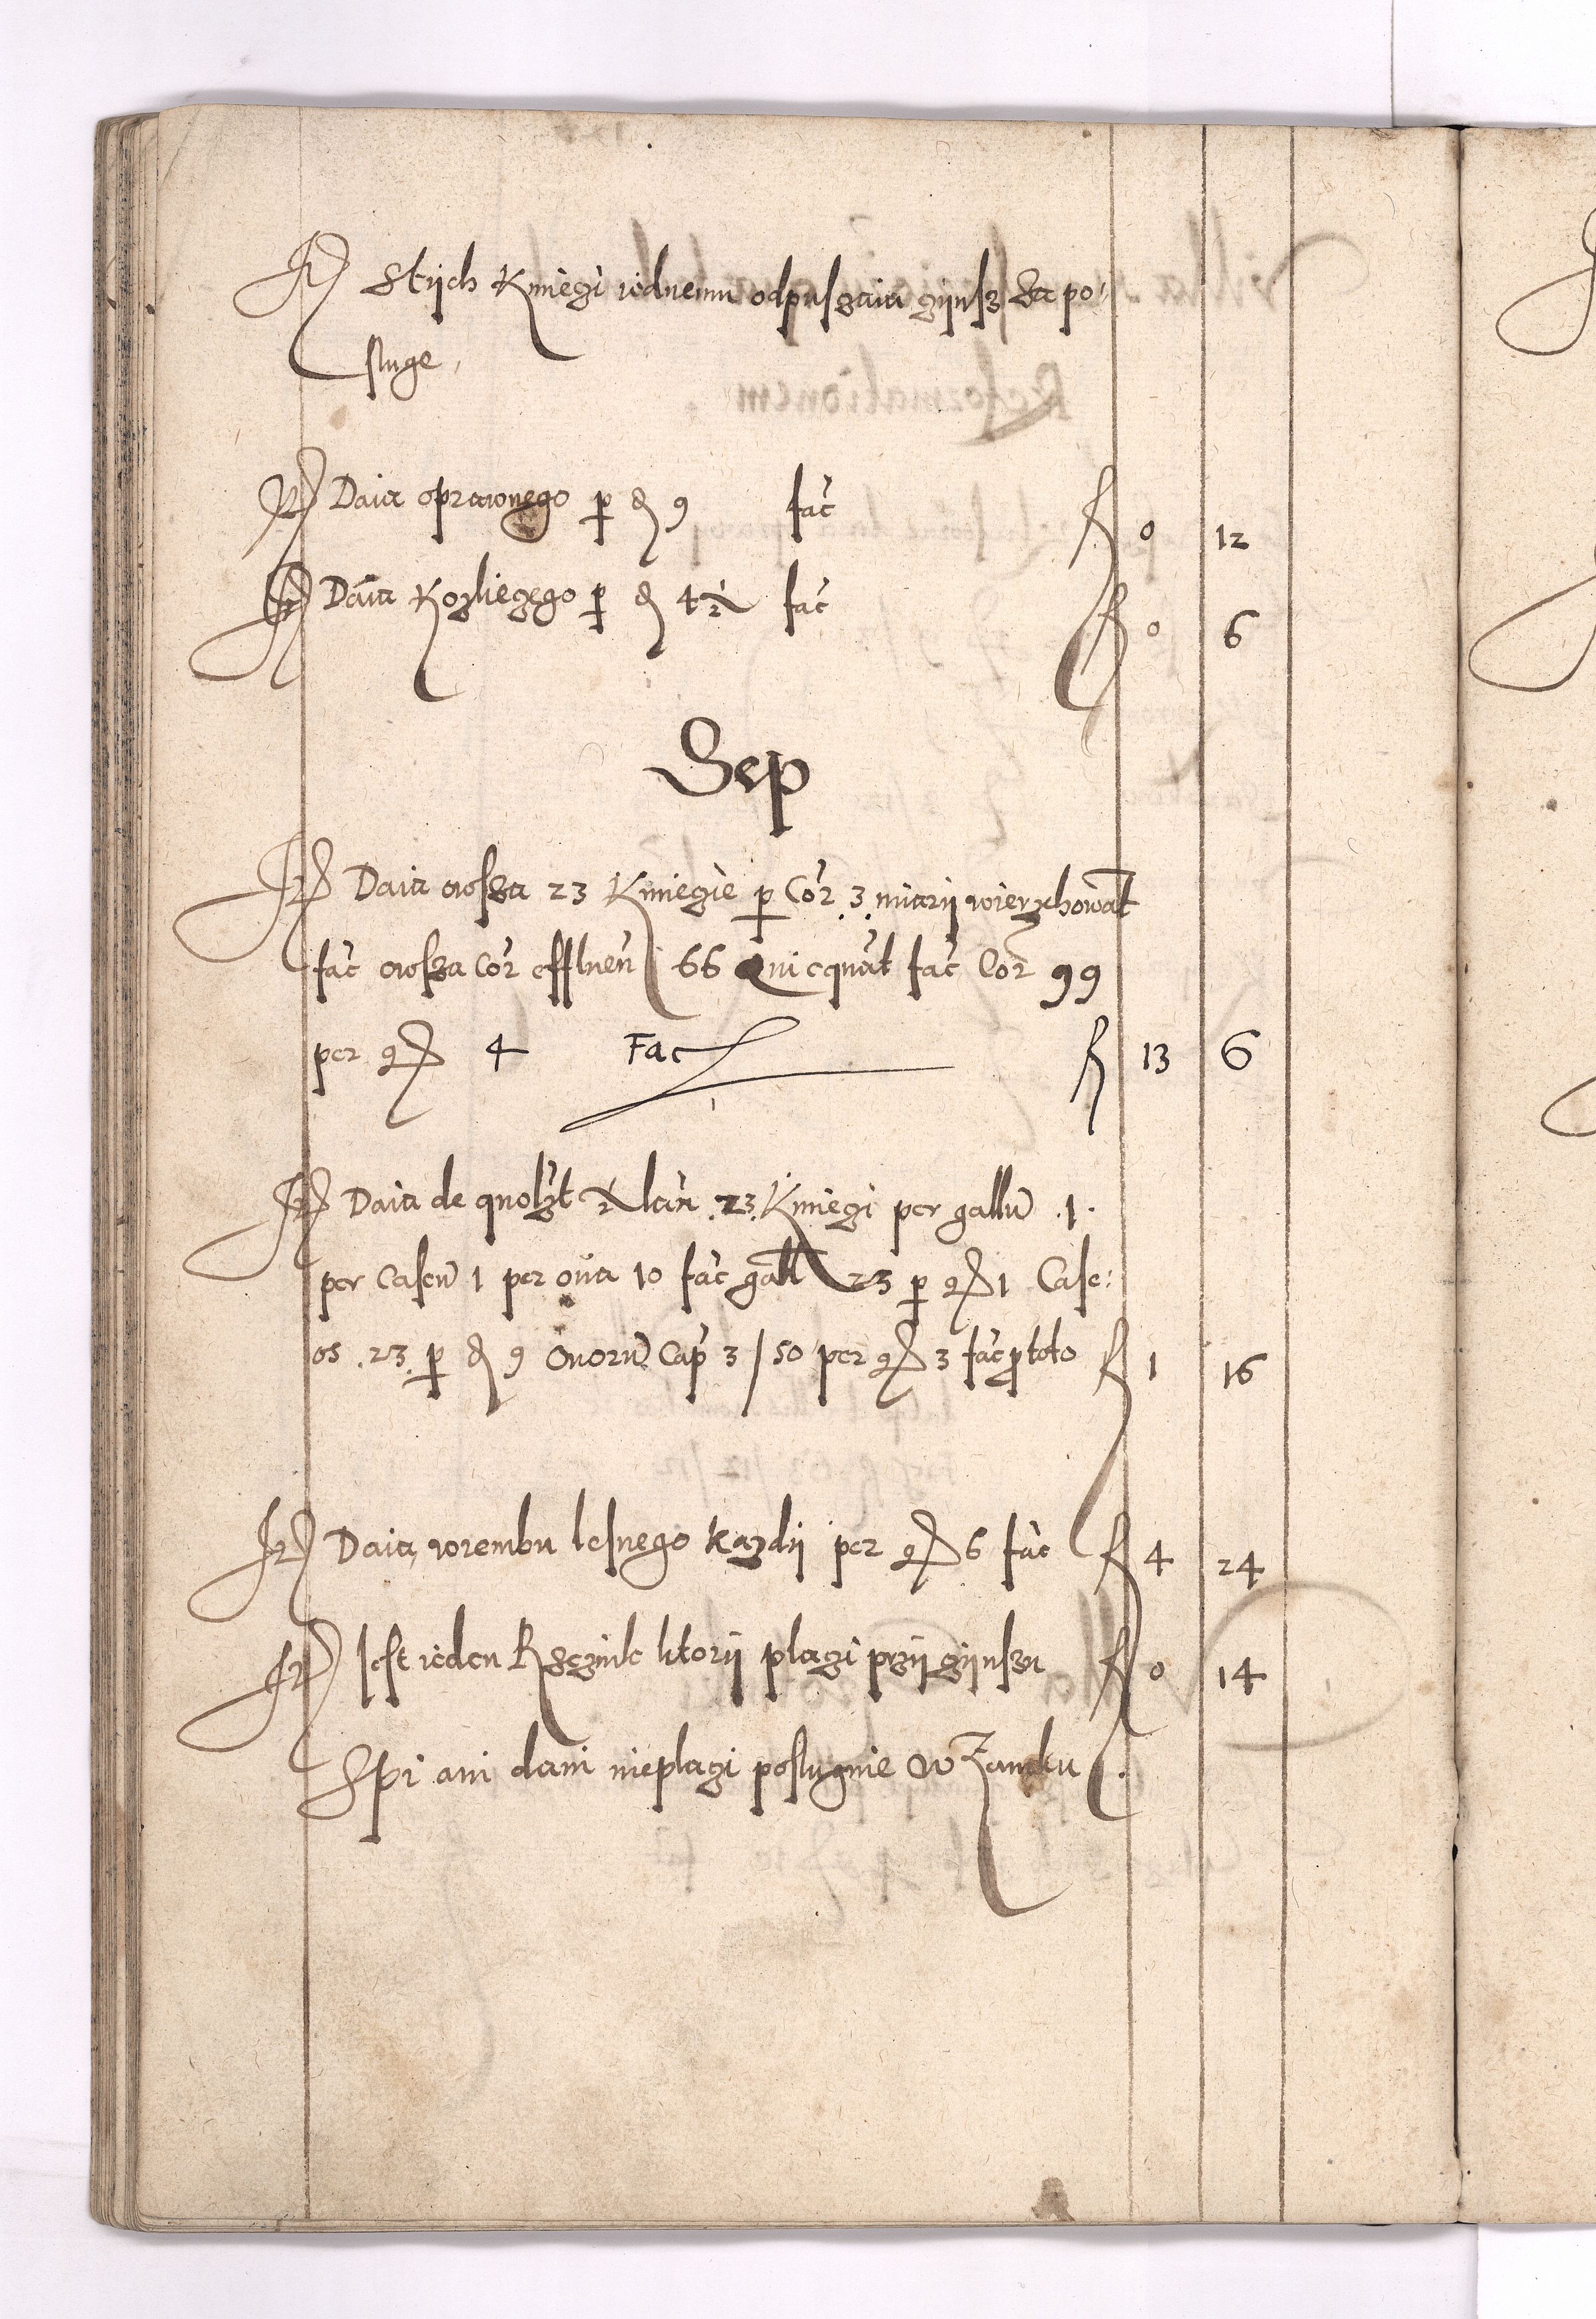 It Stÿch Kmiegi iednemu odpuszaia gÿnsz Za po-
sluge,
It Daia oprawnego p ₰ 9 fac̃ fl 0 12
It Daia Kozliegego p ₰ 4½ fac̃ fl 0 6
Sep
It Daia owsza 23 Kmiegie p Cor̃ 3 miarÿ wierzchowat
fac̃ owsza Cor̃ effluen̄ 66 Quicquāt fac̃ Cor̃ 99
per gr 4 Fac fl 13 6
It Daia de quolzt ½ lan 23 Kmiegi per gallū 1
per Caseū 1 per oua 10 fac̃ gall 23 p gr 1 Case:
os 23 p ₰ 9 Ouorū Cap 3/50 per gr 3 fac̃ p toto fl 1 16
It Daia wrembu lesnego kazdÿ per gr 6 fac̃ fl 4 24
It Jest ieden Rzeznik ktorÿ plagi przÿ gÿnszu fl 0 14
Spi ani dani nieplagi poslugnie W Zamku